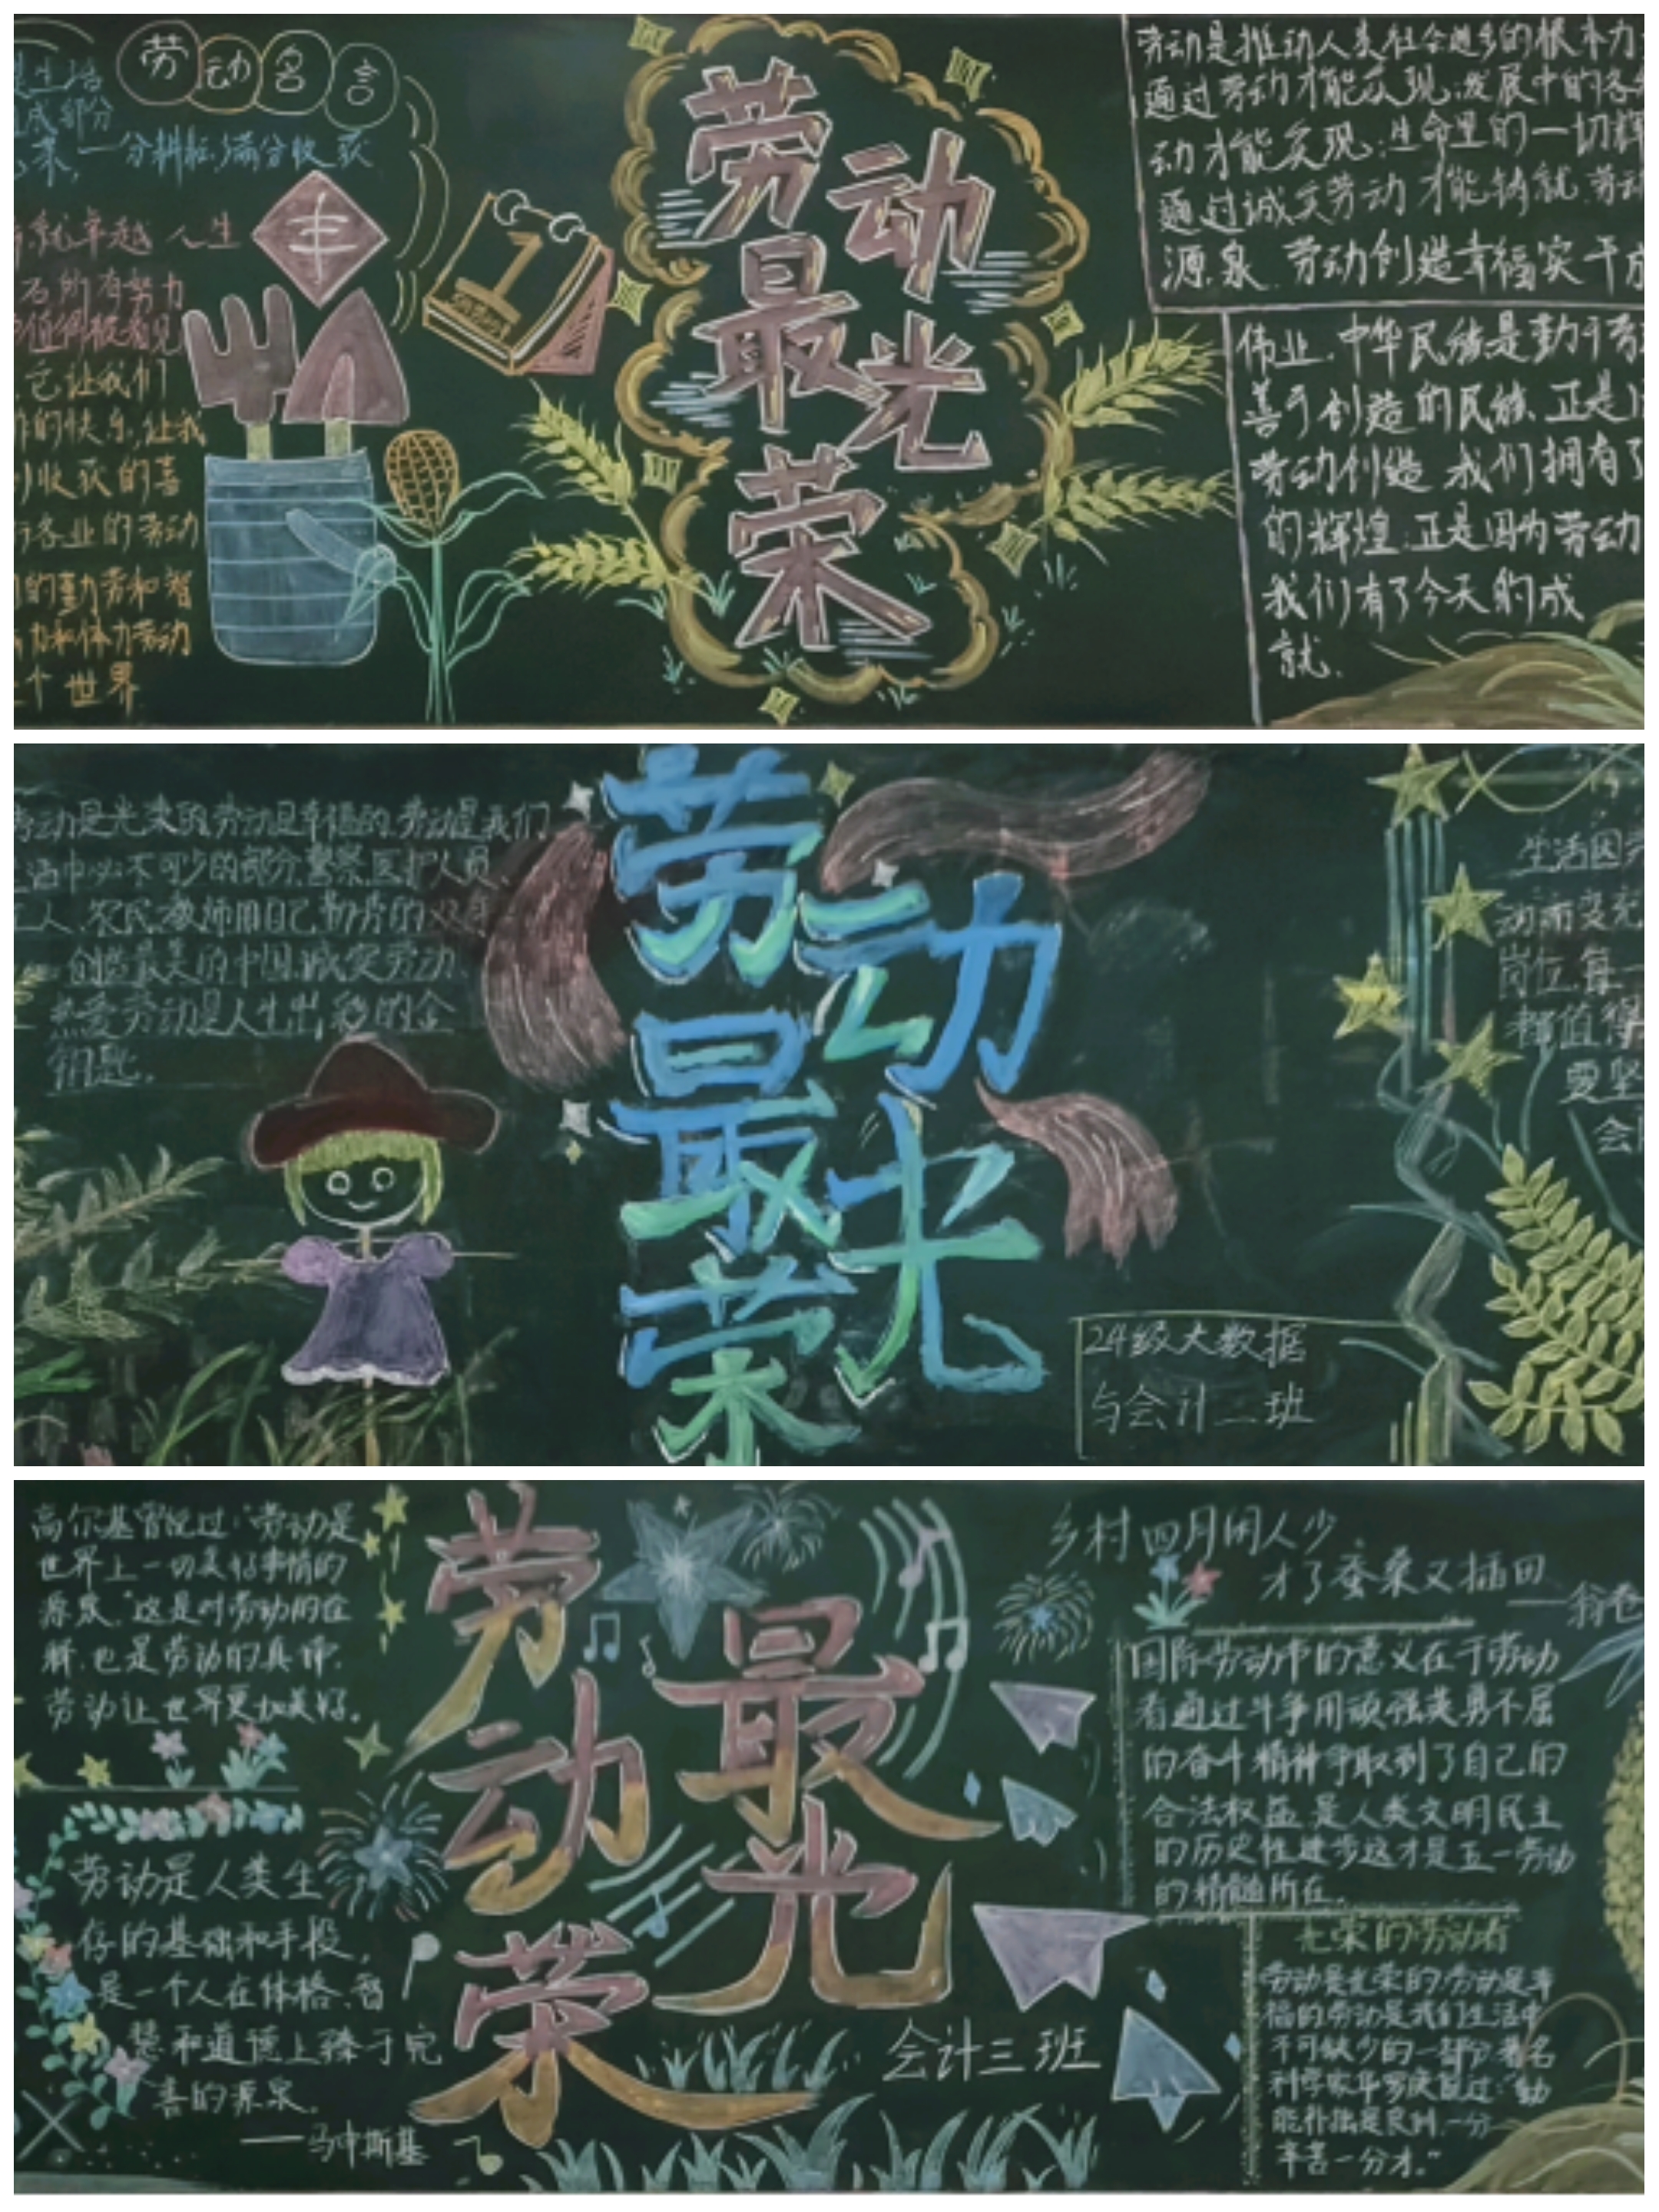 劳动名言
是生活
成部分
一分耕耘,满分收获
就卓越 人生
丰
所有努力
值得被看见
它让我们
的快乐,让我
收获的喜
各业的劳动
的勤劳和智
力和体力劳动
个世界
1
劳动
最光
荣
劳动是推动人类社会进步的根本力
通过劳动才能实现;发展中的各
动才能实现;生命里的一切辉
通过诚实劳动才能铸就.劳动
源泉.劳动创造幸福实干成
伟业.中华民族是勤于劳
善于创造的民族.正是因
劳动创造 我们拥有了
的辉煌;正是因为劳动
我们有了今天的成
就.
劳动是光荣的,劳动是幸福的,劳动是我们
活中必不可少的部分.警察,医护人员,
工人、农民、教师用自己勤劳的双手
创造最美的中国.诚实劳动
热爱劳动是人生出彩的金
钥匙.
劳动
最光
荣
生活因劳
动而变充
岗位,每一
都值得
要坚
会
24级大数据
与会计二班
高尔基曾说过:“劳动是
世界上一切美好事情的
源泉.”这是对劳动的注
解.也是劳动的真谛.
劳动让世界更加美好.
劳动是人类生
存的基础和手段,
是一个人在体格、智
慧和道德上臻于完
善的源泉.
——马申斯基
劳动
最光
荣
会计三班
乡村四月闲人少
才了蚕桑又插田
——翁卷
国际劳动节的意义在于劳动
者通过斗争用顽强英勇不屈
的奋斗精神争取到了自己的
合法权益.是人类文明民主
的历史性进步这才是五一劳动
的精髓所在.
光荣的劳动者
劳动是光荣的,劳动是幸
福的劳动是我们生活中
不可缺少的一部分.著名
科学家华罗庚说过:“勤
能补拙是良训.一分
辛苦一分才.”